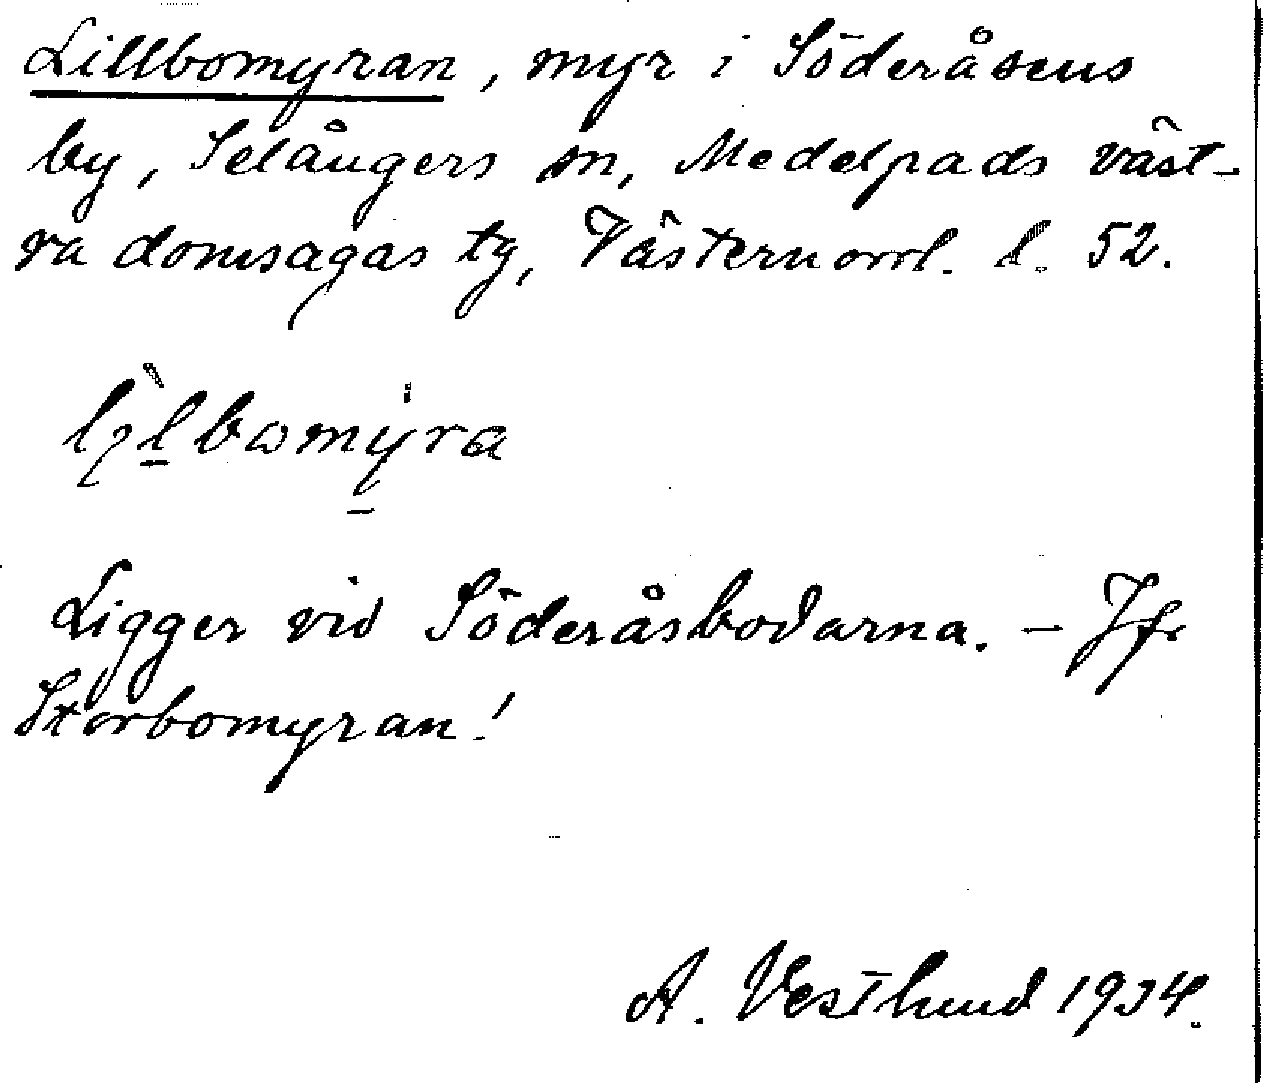 Lillbomyran, myr i Söderåsens
by, Selångers sn, Medelpads väst-
ra domsagas tg, Västernorrl. l. 52.
Ligger vid Söderåsbodarna. – Jfr
Storbomyran!
A. Vestlund 1934.